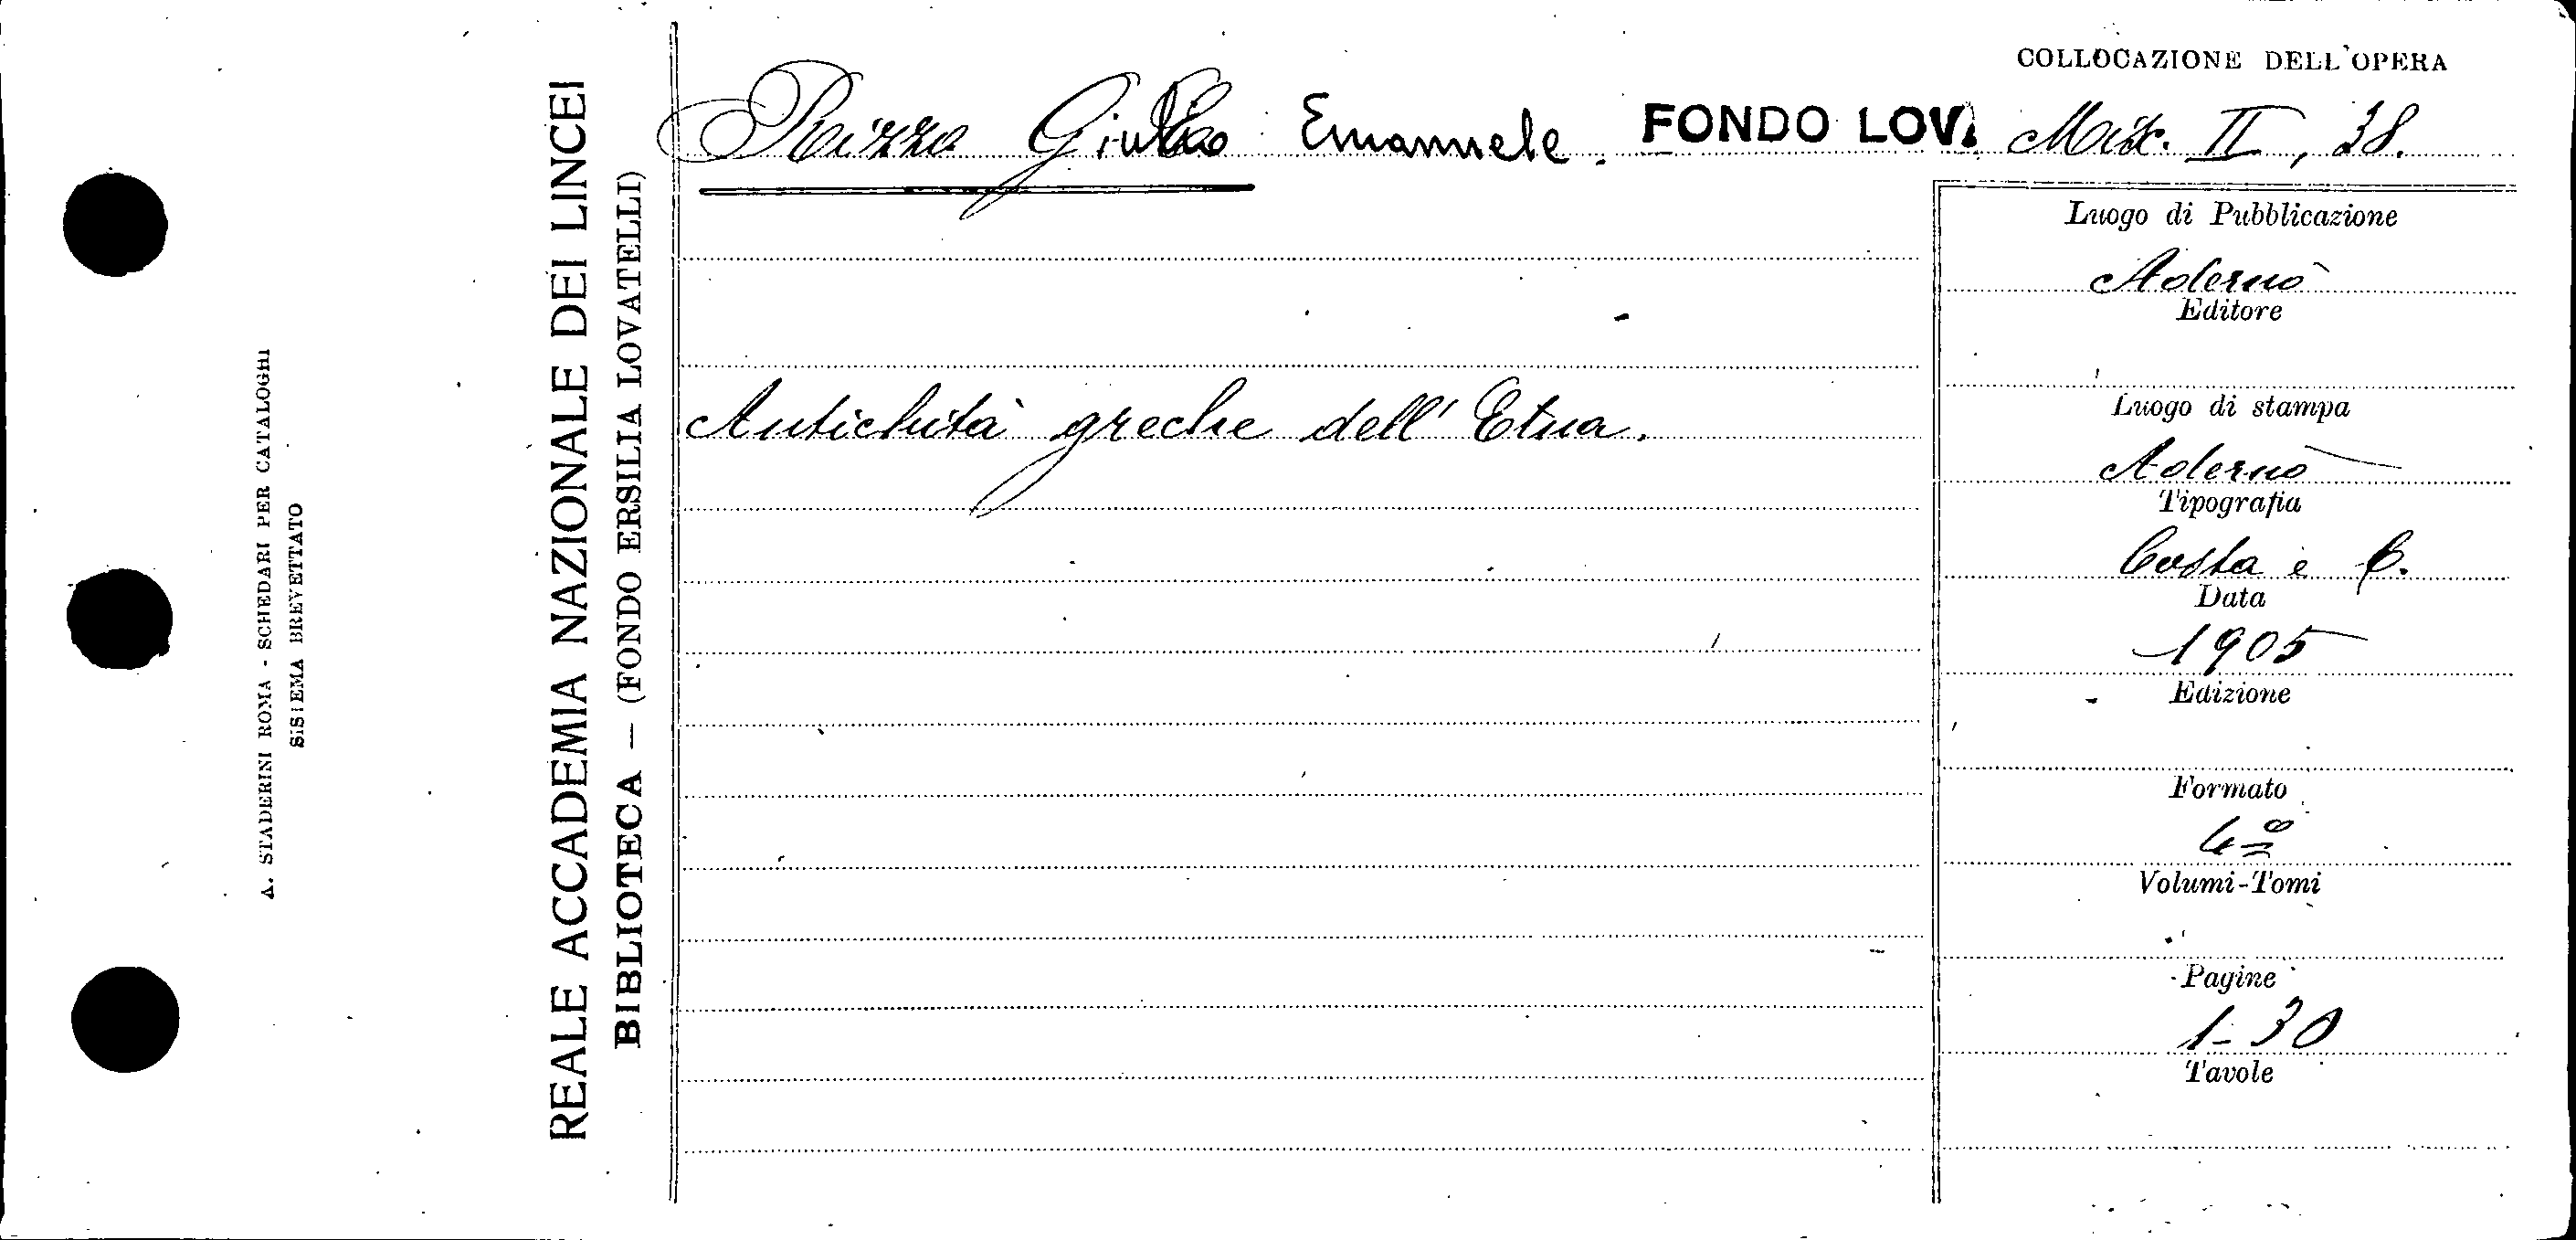 A. STADERINI ROMA - SCHEDARI PER CATALOGHI
SISTEMA BREVETTATO
REALE ACCADEMIA NAZIONALE DEI LINCEI
BIBLIOTECA — (FONDO ERSILIA LOVATELLI)
COLLOCAZIONE DELL'OPERA
Rizzo Giulio Emanuele. FONDO LOV. Misc. II, 38.
Antichità greche dell' Etna.
Luogo di Pubblicazione
Adernò
Editore
Luogo di stampa
Adernò
Tipografia
Costa e C.
Data
1905
Edizione
Formato
4º
Volumi-Tomi
Pagine
1-30
Tavole